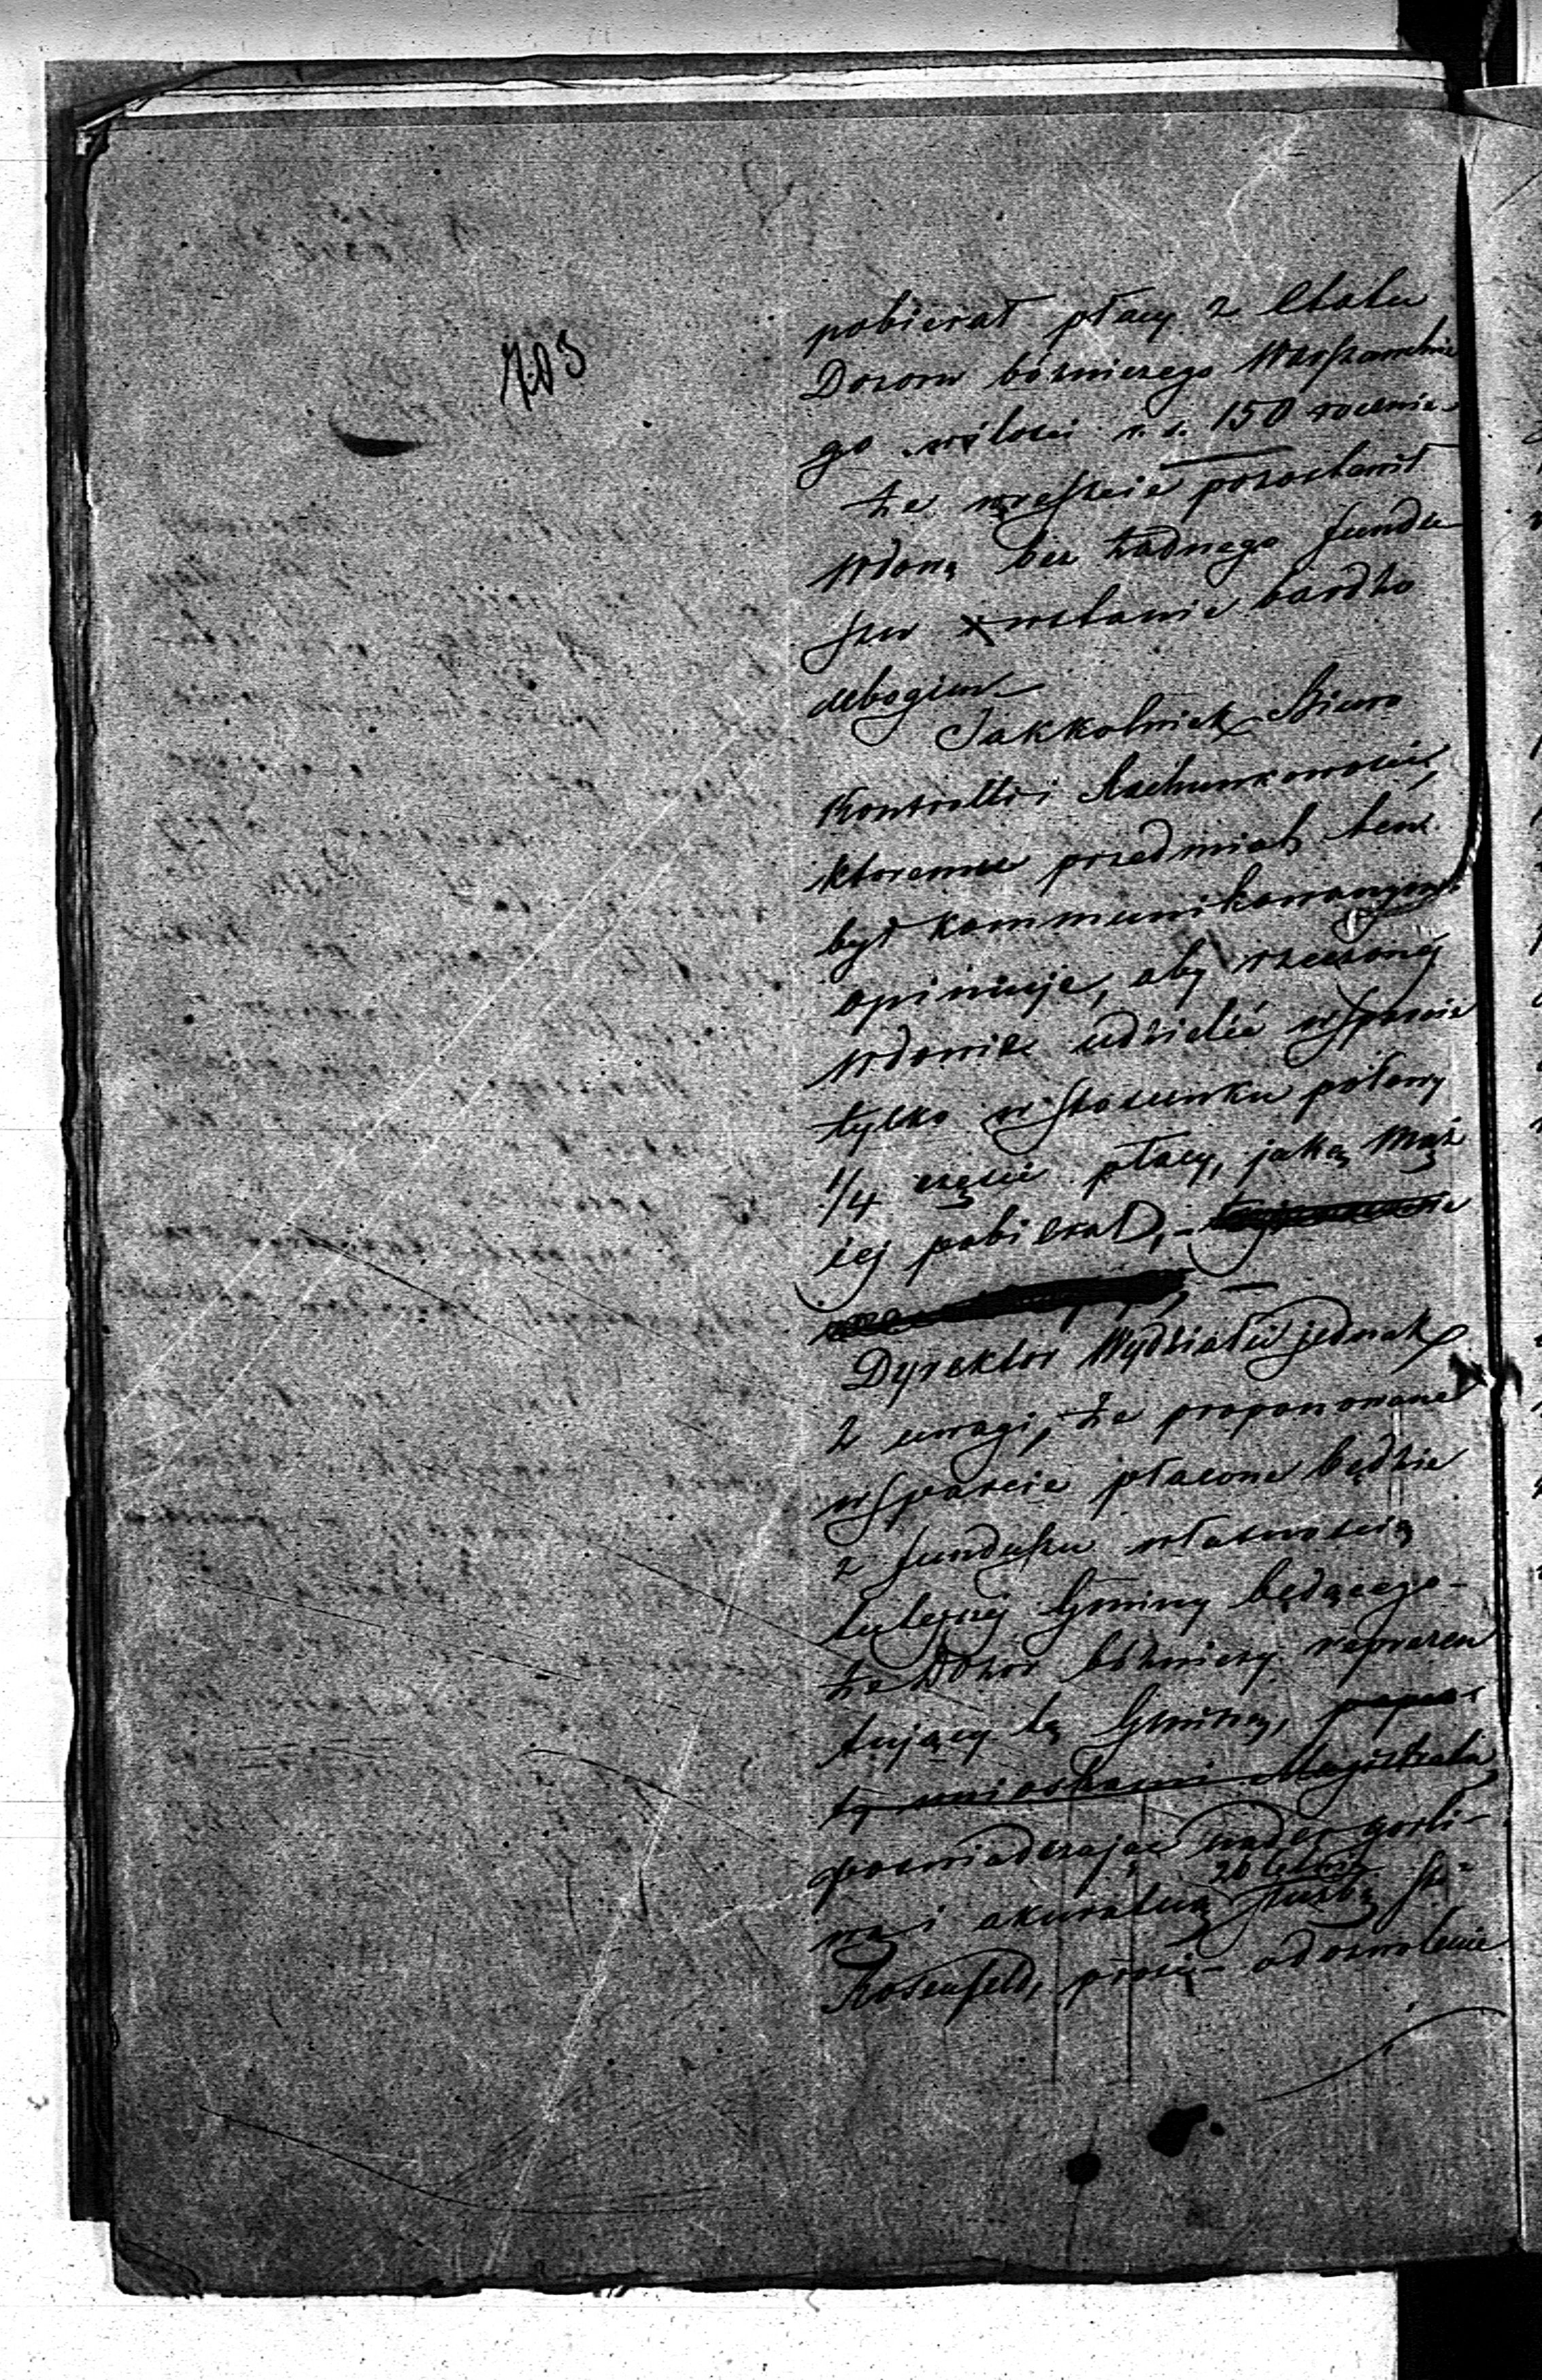 703
pobierał płacy z Etatu
Dozoru bóżniczego Warszawskie
go wilości r. s. 150 rocznie
że wreszcie pozostawił
wdowę bez żadnego fundu
szu w stanie bardzo
ubogim
Jakkolwiek Biuro
Kontrolli i Rachunkowości,
ktoremu przedmiot ten
był kommunikowanym
opiniuje, aby rzeczonej
wdowie udzielić wsparcie
tylko w stosunku połowy
1/4 części płacy, jaką Mąż
iej pobierał, -
Dyrektor Wydziału jednak
z uwagi, że proponowane
wsparcie płacone będzie
z funduszu własnością
tutejszej Gminy będącego -
że Dozór bóżniczy reprezen
tujący tę Gminę,
Magistratu
poswiadczając nader gorli-
20 letnią
wą i akuratną służbę
Rosenfeld, prosi o dozwolenie